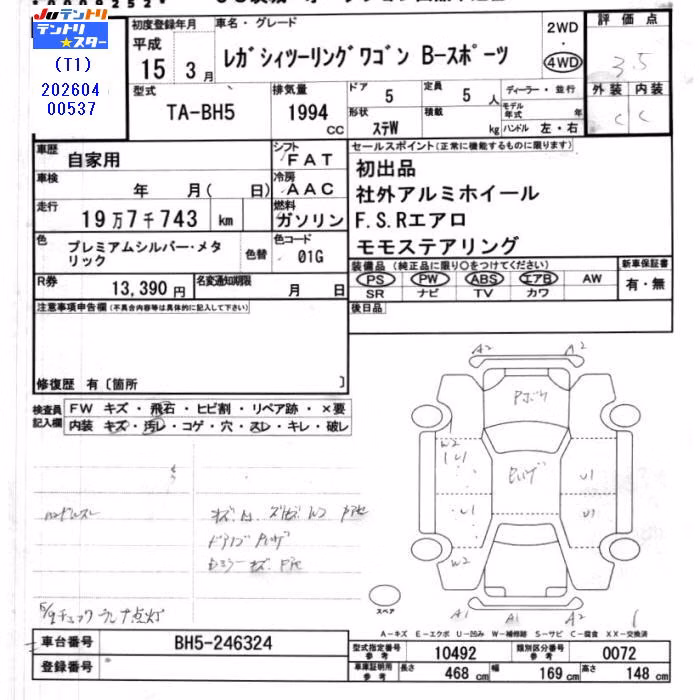 Juテントリ
テントリ★スター
(T1)
202604
00537
初度登録年月
平成
15年 3月
車名・グレード
レガシィツーリングワゴン B-スポーツ
2WD
・
4WD
評価点
3.5
外装 内装
C C
型式
TA-BH5
排気量
1994
CC
ドア
5
定員
5人
形状
ステW
積載
kg
ディーラー・並行
モデル年式 年
ハンドル 左・右
車歴
自家用
シフト
FAT
車検
年 月( 日)
冷房
AAC
走行
19万7千743 km
燃料
ガソリン
色
プレミアムシルバー・メタリック
色替
色コード
01G
R券
13,390円
名変通知期限
月 日
セールスポイント(正常に機能するものに限ります)
初出品
社外アルミホイール
F.S.Rエアロ
モモステアリング
装備品(純正品に限り○をつけてください)
PS PW ABS エアB AW
SR ナビ TV カワ
新車保証書
有・無
後日品
注意事項申告欄(不具合内容等は具体的に記入して下さい)
修復歴 有〔箇所 〕
検査員記入欄
FW キズ・飛石・ヒビ割・リペア跡・×要
内装 キズ・汚レ・コゲ・穴・スレ・キレ・破レ
ハンドルスレ
チェックランプ点灯
A2 A2
W2
U1
U1
U1
U1
W2
A1 A1
スペア
A-キズ E-エクボ U-凹み W-補修跡 S-サビ C-腐食 XX-交換済
車台番号
BH5-246324
登録番号
型式指定番号 参考
10492
類別区分番号 参考
0072
車庫証明用 参考
長さ 468 cm 幅 169 cm 高さ 148 cm